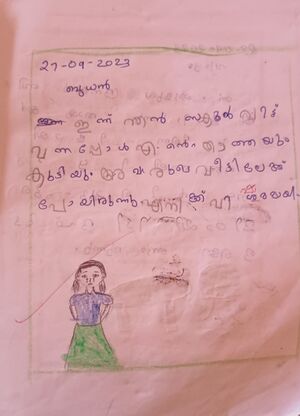 27-09-2023
ബുധൻ
ഇന്ന് ഞാൻ സ്കൂൾ വിട്ട്
വന്നപ്പോൾ എന്റെ താത്തയും
കുട്ടിയും അവരുടെ വീട്ടിലേക്ക്
പോയിരുന്നു എനിക്ക്